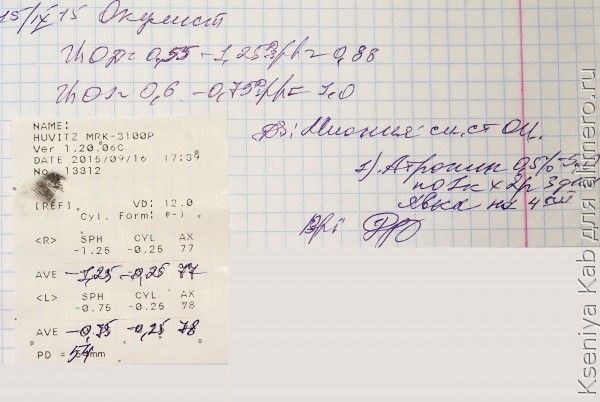 15/IX 15 Окулист
Vis OD = 0,55 -1,25 Sph = 0,88
Vis OS = 0,6 -0,75 Sph = 1.0
Ds: Миопия сл. ст OU.
1) Атропин 0,5%
по 1к x 2р 3 дня
Явка на 4
Вр:
NAME:
HUVITZ MRK-3100P
Ver 1.20.06C
DATE 2015/09/16 17:39
No. 13312
[REF] VD: 12.0
Cyl. Form: (-)
<R> SPH CYL AX
-1.25 -0.25 77
AVE -1,25 -0,25 77
<L> SPH CYL AX
-0.75 -0.25 78
AVE -0,75 -0,25 78
PD = 54mm
Kseniya Kab для Primero.ru